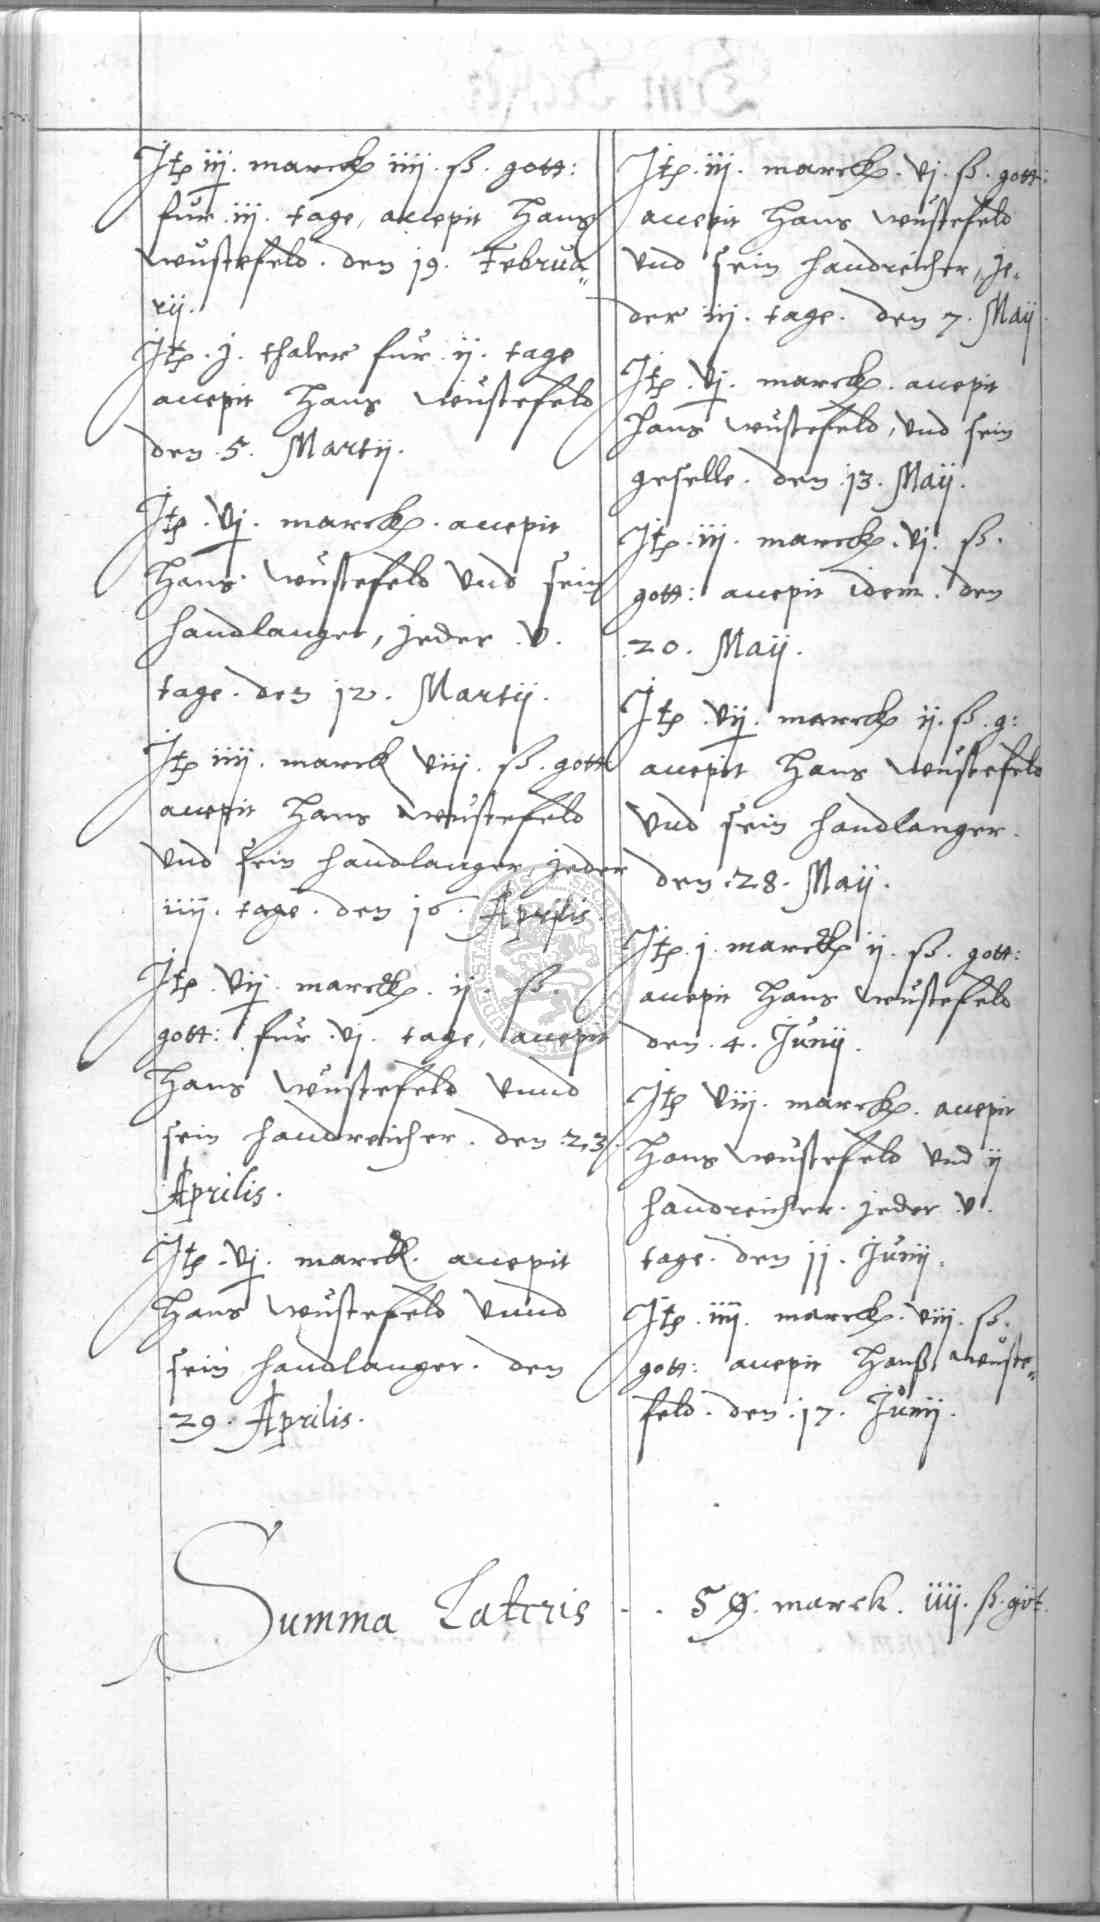 Itp iij. marck iiij. ß. gott:
fur .iij. tage, accepit Hans
Wustefeld. den 19. Februa„
rij.
Itp. j. thaler fur .ij. tage
accepit Hans Wüstefeld
den .5. Martij.
Itp .vj. marck. accepit
Hans Wüstefeld vnd sein
handlanger, jeder .v.
tage. den 12. Martij.
Itp iiij. marck viij. ß. gott:
accepit Hans Wüstefeld
vnd sein handlanger, jeder
iiij. tage. den 16. Aprilis.
Itp .vij. marck. ij. ß.
gott: fur .vj. tage, accepit
Hans Wüstefeld vnnd
sein handreicher. den .23.
Aprilis.
Itp .vj. marck. accepit
Hans Wüstefeld vnnd
sein handlanger. den
29. Aprilis.
Itp .iij. marck. vj. ß. gott:
accepit Hans Wüstefeld
vnd sein handreicher, je„
der iij. tage. den 7. Maij.
Itp .vj. marck. accepit
Hans Wüstefeld, vnd sein
geselle. den .13. Maij.
Itp .iij. marck. vj. ß.
gott: accepit idem. den
20. Maij.
Itp .vij. marck ij. ß. g:
accepit Hans Wüstefeld
vnd sein handlanger.
den .28. Maij.
Itp .j. marck ij. ß. gott:
accepit Hans Wüstefeld
den .4. Junij.
Itp viij. marck. accepit
Hans Wüstefeld vnd ij
handreicher. jeder .v.
tage. den 11. Junij.
Itp .iiij. marck. viij. ß.
gott: accepit Hanß Wuste„
feld. den .17. Junij.
Summa Lateris . . 59. marck. iiij. ß. gott.